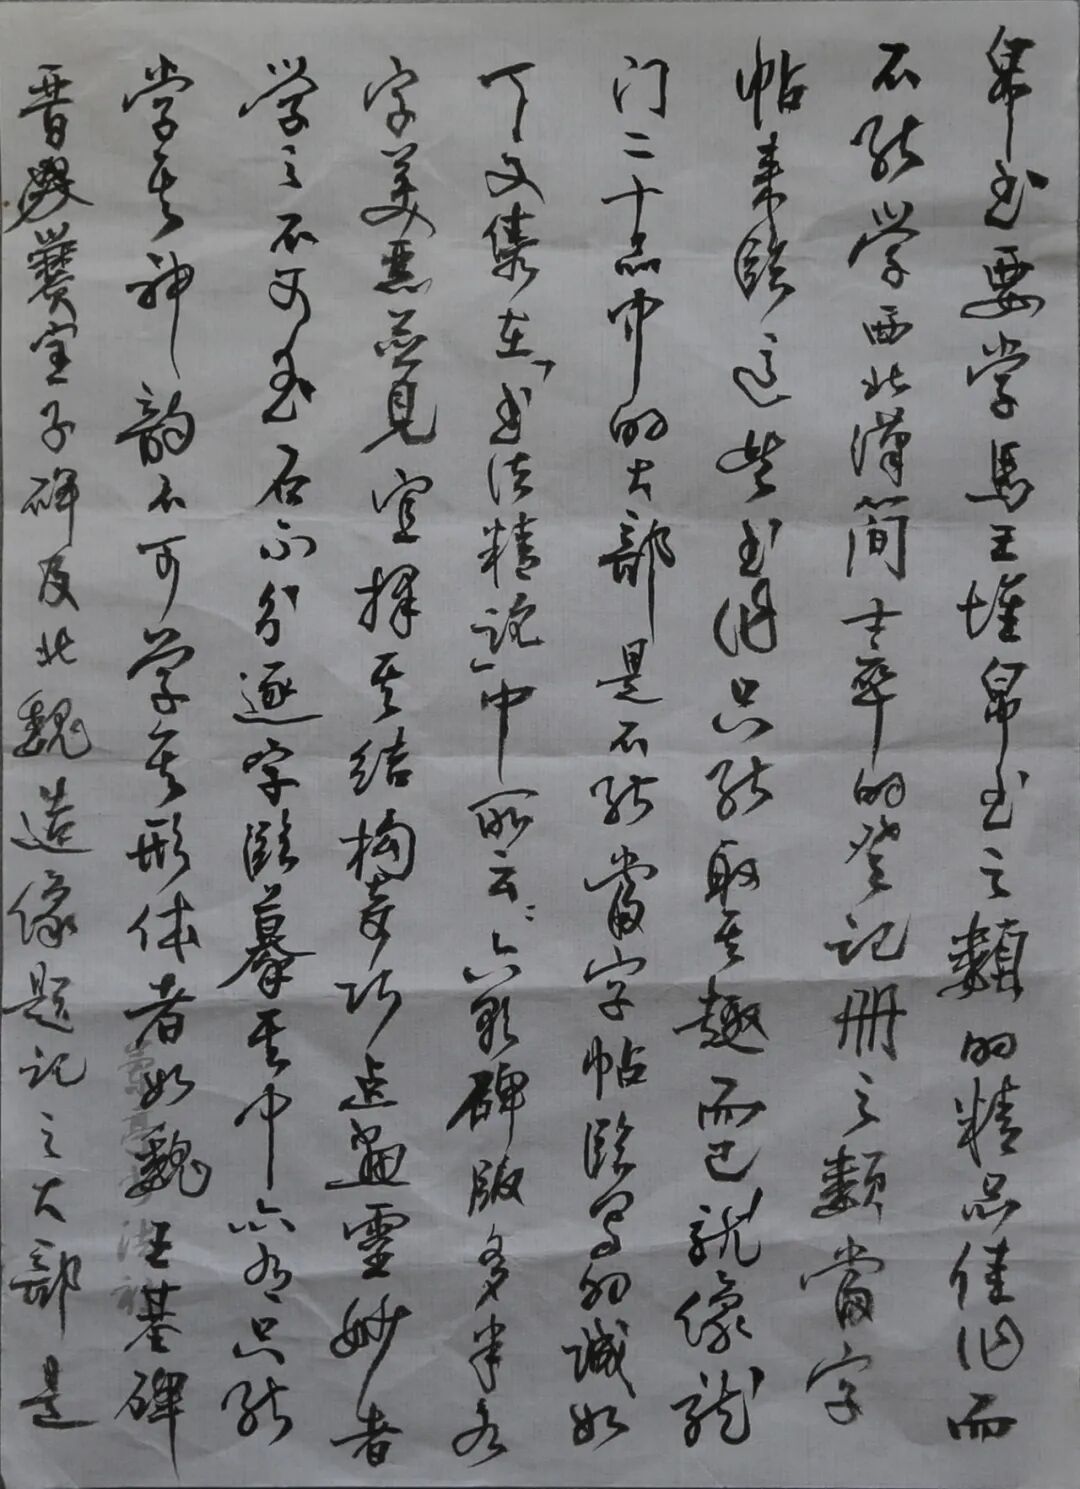 帛书要学馬王堆帛书之類的精品佳作而
不能学西北漢简士卒的登记册之類當字
帖来臨这些书法只能取其趣而已就像龍
门二十品中的大部是不能當字帖臨写的誠如
丁文隽在「书法精论」中所云：六朝碑版多半各
字美恶並見宜择其结构奇巧点画靈妙者
学之不可玉石不分逐字臨摹其中亦有只能
学其神韵不可学其形体者如魏王基碑
晋爨寶子碑及北魏造像题记之大部是